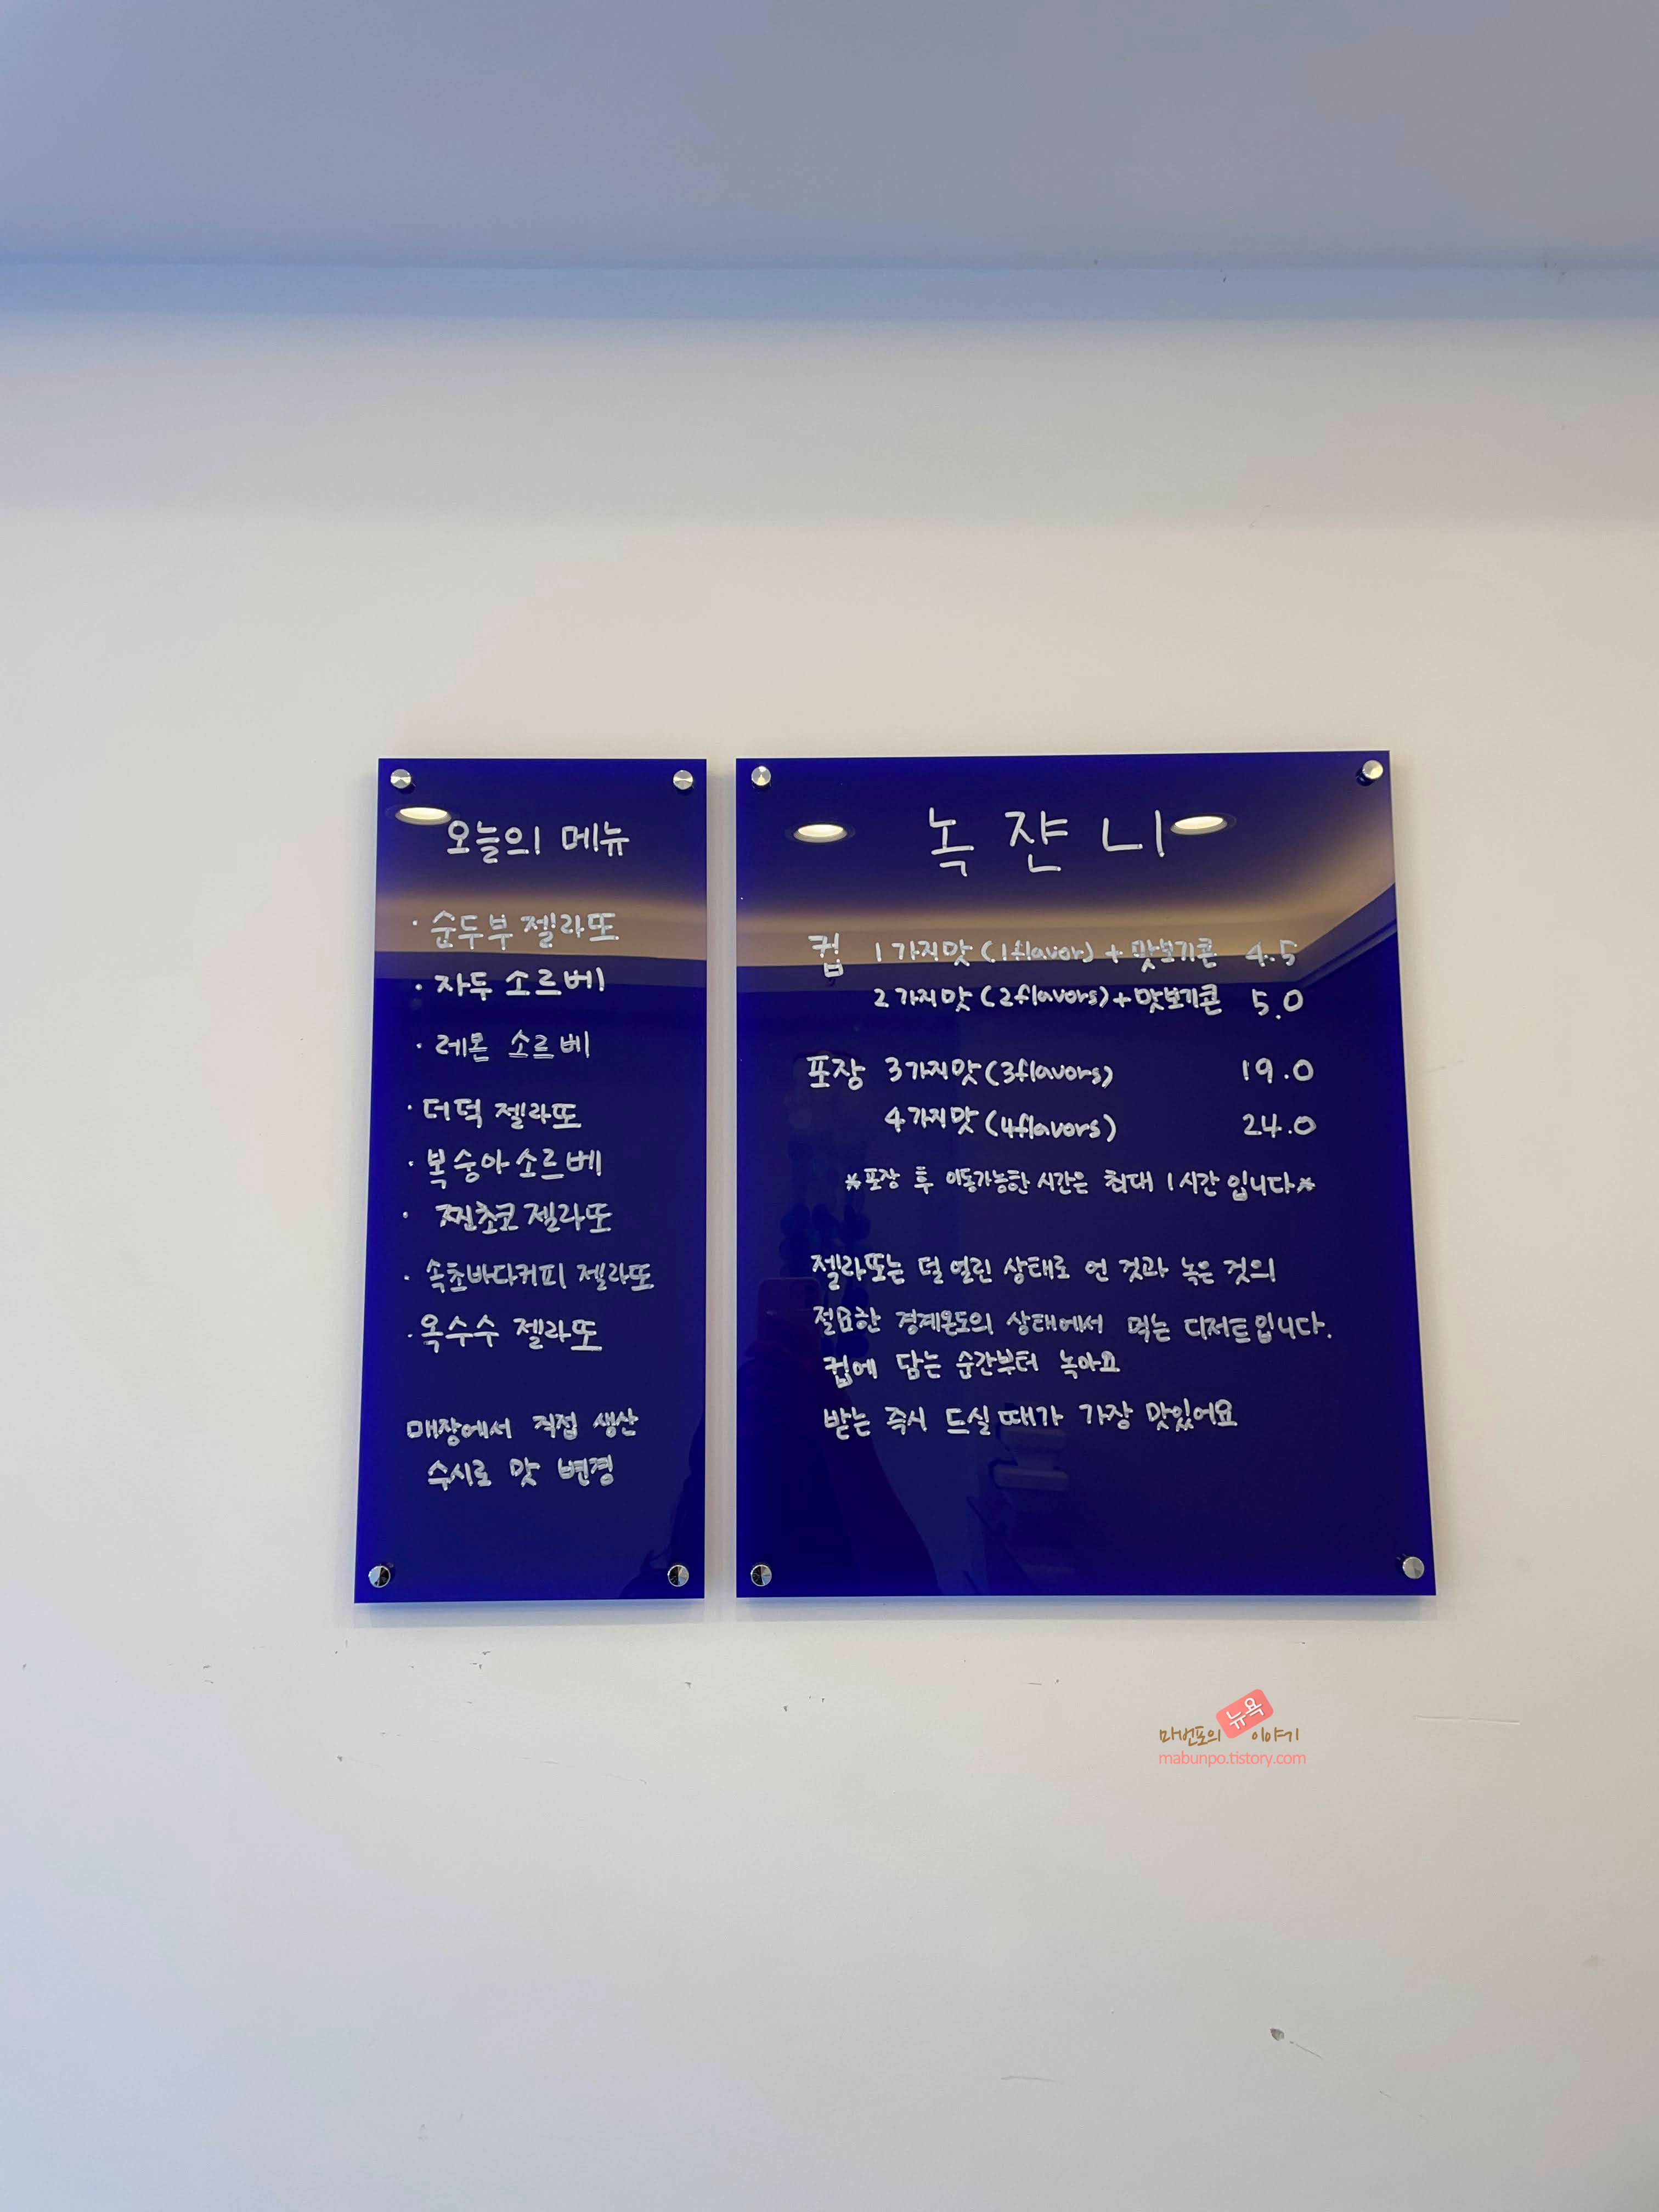 오늘의 메뉴
· 순두부 젤라또
· 자두 소르베
· 레몬 소르베
· 더덕 젤라또
· 복숭아 소르베
· 찐초코 젤라또
· 속초바다커피 젤라또
· 옥수수 젤라또
매장에서 직접 생산
수시로 맛 변경
녹 쟌 니
컵 1가지맛 (1flavor) + 맛보기콘 4.5
2가지맛 (2flavors) + 맛보기콘 5.0
포장 3가지맛 (3flavors) 19.0
4가지맛 (4flavors) 24.0
*포장 후 이동가능한 시간은 최대 1시간 입니다*
젤라또는 덜 얼린 상태로 언 것과 녹은 것의
절묘한 경계온도의 상태에서 먹는 디저트입니다.
컵에 담는 순간부터 녹아요
받는 즉시 드실 때가 가장 맛있어요
마번포의 뉴욕 이야기
mabunpo.tistory.com